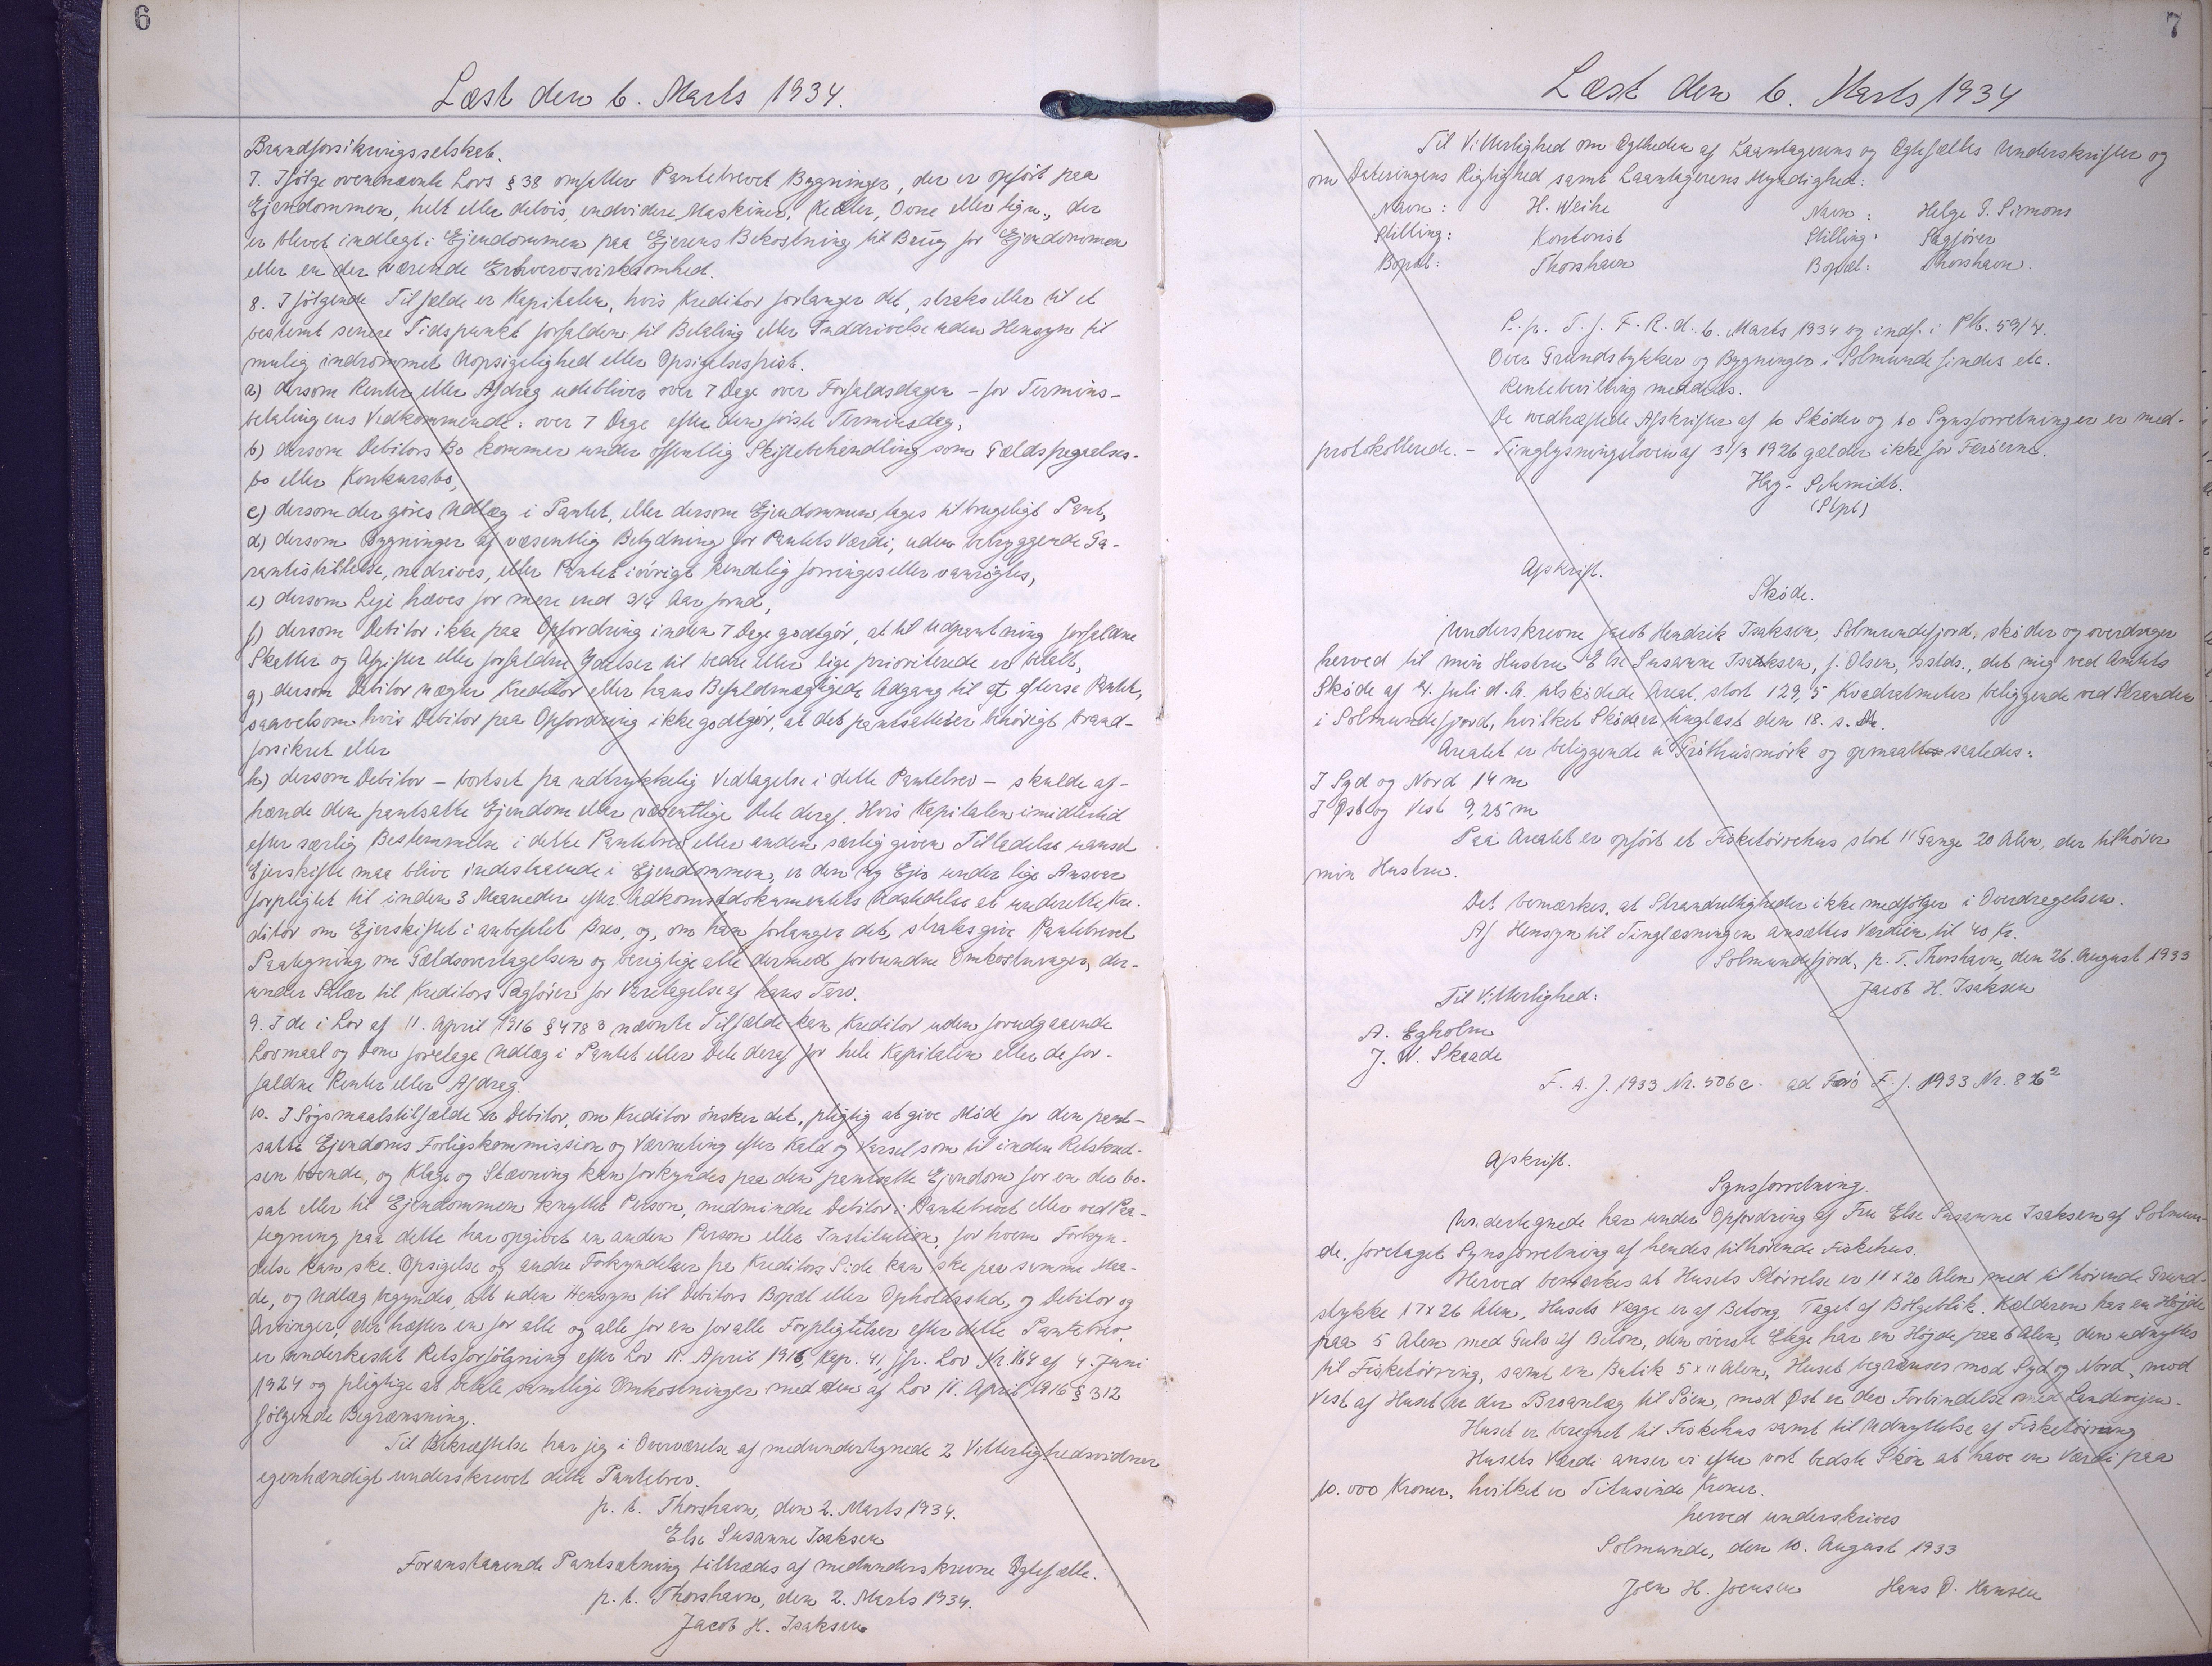 6
Læst den 6. Marts 1934.
Brandforsikringsselskab.
7. Ifølge ovennævnte Lovs § 38 omfatter Pantebrevet Bygninger, der er opført paa
Ejendommen, helt eller delvis, endvidere Maskiner, Kedler, Ovne eller lign., der
er blevet indlagt i Ejendommen paa Ejerens Bekostning til Brug for Ejendommen
eller en der værende Erhvervsvirksomhed.
8. I følgende Tilfælde er Kapitalen, hvis Kreditor forlanger det, straks eller til et
bestemt senere Tidspunkt forfalden til Betaling eller Inddrivelse uden Hensyn til
mulig indrømmet Uopsigelighed eller Opsigelsesfrist.
a) dersom Renter eller Afdrag udeblives over 7 Dage over Forfaldsdagen - for Termins-
betalingens Vedkommende: over 7 Dage efter den første Terminsdag,
b) dersom Debitors Bo kommer under offentlig Skiftebehandling som Gældsfragaaelses-
bo eller Konkursbo,
c) dersom der gøres Udlæg i Pantet, eller dersom Ejendommen tages til brugeligt Pant,
d) dersom Bygninger af væsentlig Betydning for Pantets Værdi, uden betryggende Ga-
rantistillelse, nedrives, eller Pantet iøvrigt kendelig forringes eller vanrøgtes,
e) dersom Leje hæves for mere end 3/4 Aar forud,
f) dersom Debitor ikke paa Opfordring inden 7 Dage godtgør, at til Udpantning forfaldne
Skatter og Afgifter eller forfaldne Ydelser til bedre eller lige prioriterede er betalt,
g) dersom Debitor nægter Kreditor eller hans Befuldmægtigede Adgang til at efterse Pantet,
saavelsom hvis Debitor paa Opfordring ikke godtgør, at det pantsatte er behørigt brand-
forsikret eller
h) dersom Debitor - bortset fra udtrykkelig Vedtagelse i dette Pantebrev - skulde af-
hænde den pantsatte Ejendom eller væsentlige Dele deraf. Hvis Kapitalen imidlertid
efter særlig Bestemmelse i dette Pantebrev eller anden særlig given Tilladelse uanset
Ejerskifte maa blive indestaaende i Ejendommen, er den ny Ejer under lige Ansvar
forpligtet til inden 3 Maaneder efter Adkomstdokumentets Udstedelse at underrette Kre-
ditor om Ejerskiftet i anbefalet Brev, og, om han forlanger det, straks give Pantebrevet
Paategning om Gældsovertagelsen og berigtige alle dermed forbundne Omkostninger, der-
under Salær til Kreditors Sagfører for Varetagelse af hans Tarv.
9. I de i Lov af 11. April 1916 § 478 3 nævnte Tilfælde kan Kreditor uden forudgaaende
Lovmaal og Dom foretage Udlæg i Pantet eller Dele deraf for hele Kapitalen eller de for-
faldne Renter eller Afdrag.
10. I Søgsmaalstilfælde er Debitor, om Kreditor ønsker det, pligtig at give Møde for den pant-
satte Ejendoms Forligskommission og Værneting efter Kald og Varsel som til inden Retskred-
sen boende, og Klage og Stævning kan forkyndes paa den pantsatte Ejendom for en der bo-
sat eller til Ejendommen knyttet Person, medmindre Debitor i Pantebrevet eller ved Paa-
tegning paa dette har opgivet en anden Person eller Institution, for hvem Forkyn-
delse kan ske. Opsigelse og andre Forkyndelser fra Kreditors Side kan ske paa samme Maa-
de, og Udlæg begyndes, alt uden Hensyn til Debitors Bopæl eller Opholdssted, og Debitor og
Arvinger, der hæfter en for alle og alle for en for alle Forpligtelser efter dette Pantebrev,
er underkastet Retsforfølgning efter Lov 11. April 1916, Kap. 41, jfr. Lov Nr. 164 af 4. Juni
1924 og pligtige at betale samtlige Omkostninger med den af Lov 11. April 1916 § 312
følgende Begrænsning.
Til Bekræftelse har jeg i Overværelse af medundertegnede 2 Vitterlighedsvidner
egenhændigt underskrevet dette Pantebrev.
p. t. Thorshavn, den 2. Marts 1934.
Else Susanne Isaksen
Foranstaaende Pantsætning tiltrædes af medunderskrevne Ægtefælle.
p. t. Thorshavn, den 2. Marts 1934.
Jacob H. Isaksen
7
Læst den 6. Marts 1934
Til Vitterlighed om Ægtheden af Laantagerens og Ægtefælles Underskrifter og
om Dateringens Rigtighed samt Laantagerens Myndighed:
Navn: H. Weihe Navn: Helge G. Simons
Stilling: Kontorist Stilling: Sagfører
Bopæl: Thorshavn Bopæl: Thorshavn.
P. p. T. f. F. R. d. 6. Marts 1934 og indf. i Ptb. 59/4.
Over Grundstykker og Bygninger i Solmunde findes etc.
Rentebevilling meddeles.
De vedhæftede Afskrifter af to Skøder og to Synsforretninger er med-
protokollerede. - Tinglysningsloven af 31/3 1926 gælder ikke for Færøerne.
Hag. Schmidt.
(Stpl)
Afskrift.
Skøde.
Underskrevne Jacob Hendrik Isaksen, Solmundefjord, skøder og overdrager
herved til min Hustru Else Susanne Isaksen, f. Olsen, sstds., det mig ved Amtets
Skøde af 4. Juli d. A. tilskødede Areal, stort 129,5 Kvadratmeter beliggende ved Stranden
i Solmundefjord, hvilket Skøde er tinglæst den 18. s. M.
Arealet er beliggende i Grøthusmørk og opmaalt saaledes:
I Syd og Nord 14 m
I Øst og Vest 9,25 m
Paa Arealet er opført et Fisketørrehus stort 11 Gange 20 Alen, der tilhører
min Hustru.
Det bemærkes, at Strandrettigheder ikke medfølger i Overdragelsen.
Af Hensyn til Tinglæsningen ansættes Værdien til 40 Kr.
Solmundefjord, p. T. Thorshavn, den 26. August 1933
Til Vitterlighed: Jacob H. Isaksen
A. Egholm
J. W. Skaade
F. A. J. 1933 Nr. 506 c. ad Færø F. J. 1933 Nr.
Afskrift.
Synsforretning.
Undertegnede har under Opfordring af Fru Else Susanne Isaksen af Solmun-
de, foretaget Synsforretning af hendes tilhørende Fiskehus.
Herved bemærkes at Husets Størrelse er 11 x 20 Alen med tilhørende Grund-
stykke 17 x 26 Alen. Husets Vægge er af Betong, Taget af Bølgeblik. Kælderen har en Højde
paa 5 Alen med Gulv af Beton, den øverste Etage har en Højde paa 6 Alen, den udnyttes
til Fisketørring, samt en Butik 5 x 11 Alen, Huset begrænses mod Syd og Nord, mod
Vest af Huset er der Broanlæg til Søen, mod Øst er der Forbindelse med Landevejen.
Huset er beregnet til Fiskehus samt til Udnyttelse af Fisketørring
Husets Værdi anser vi efter vort bedste Skøn at have en Værdi paa
10.000 Kroner, hvilket er Titusinde Kroner.
herved underskrives
Solmunde, den 10. August 1933
Joen H. Joensen Hans D. Hansen